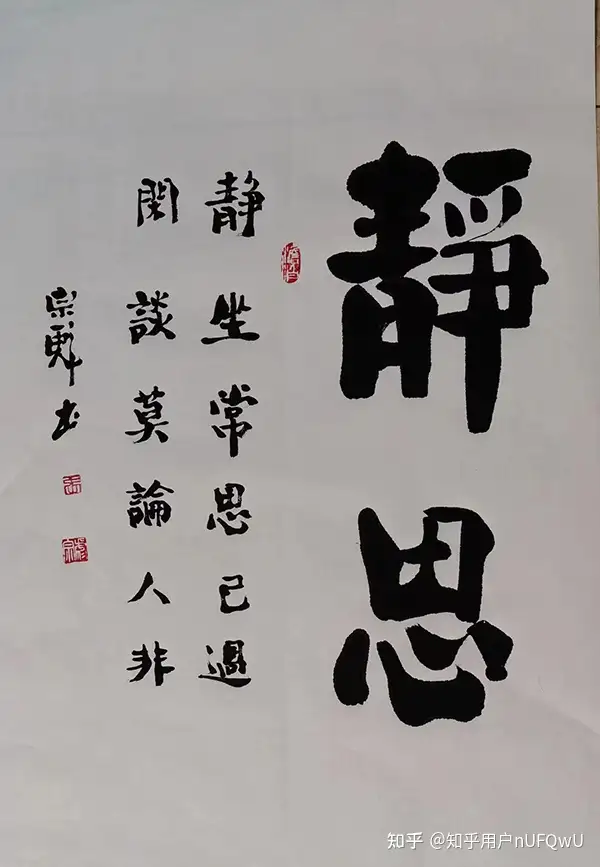 靜思
静坐常思己過
閑談莫論人非
宗 书
知乎 @知乎用户nUFQwU